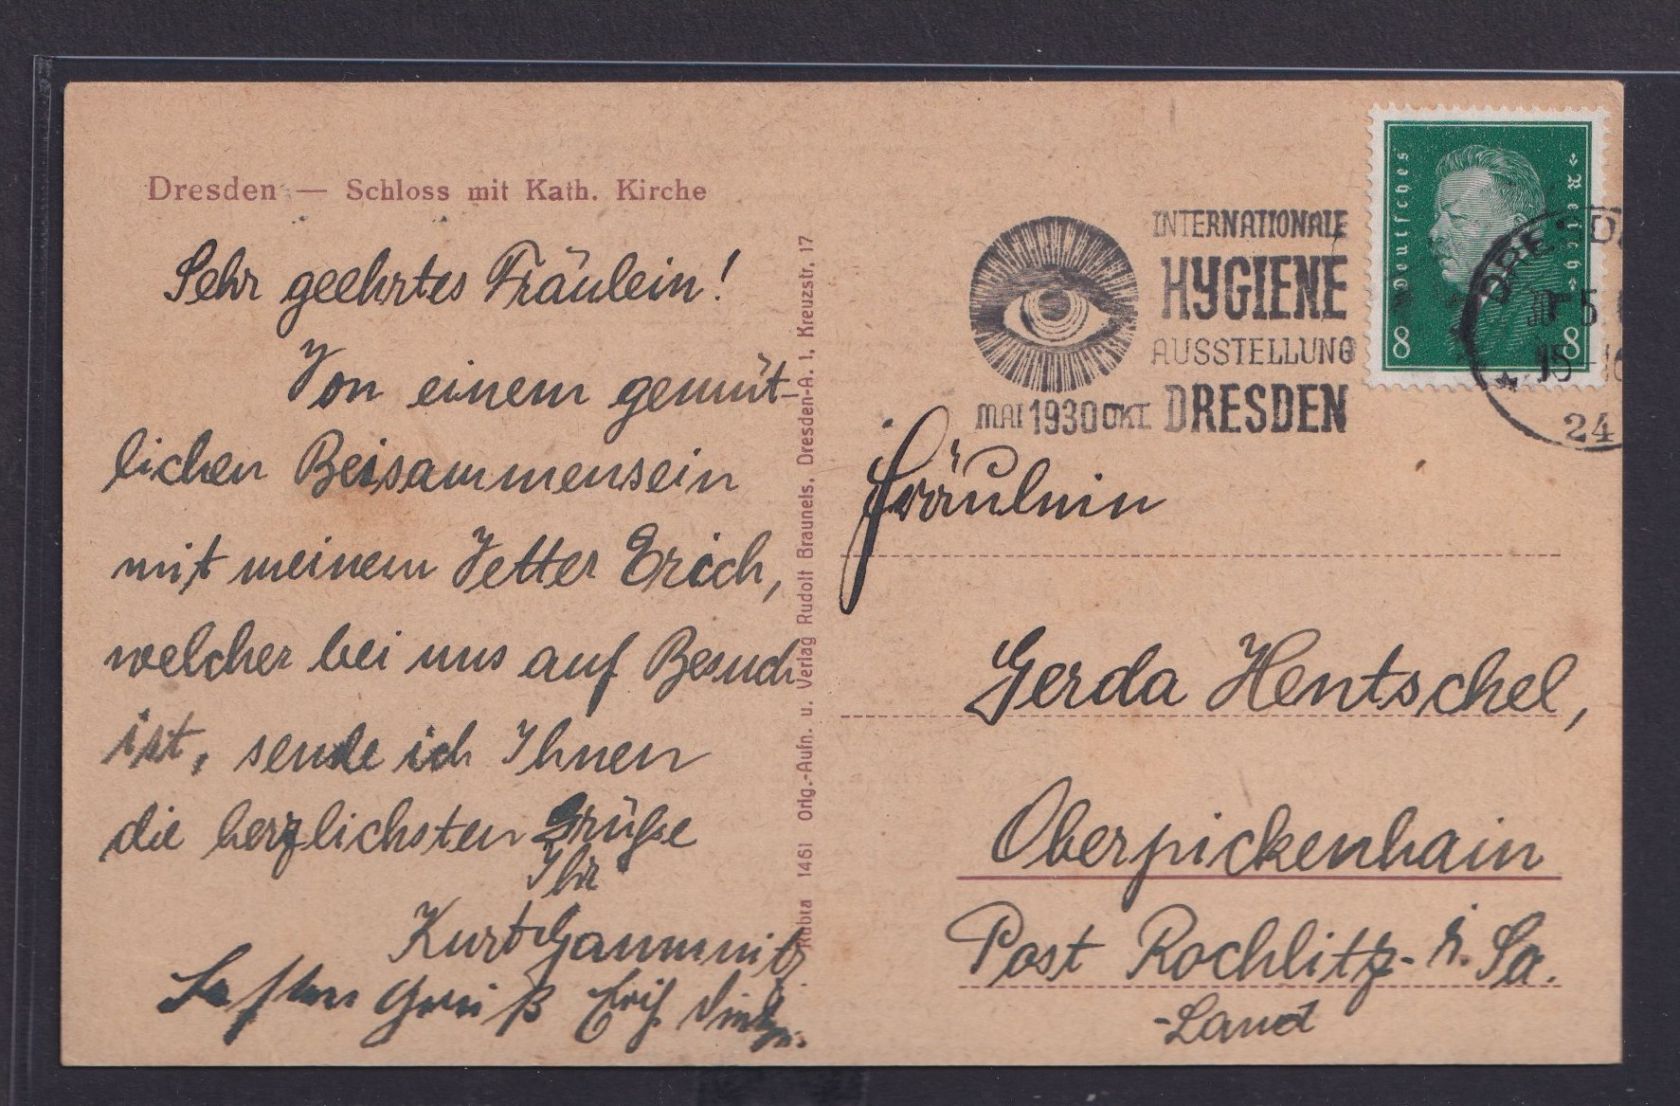 Dresden — Schloss mit Kath. Kirche
Sehr geehrtes Fräulein!
Von einem gemüt-
lichen Beisammensein
mit meinem Vetter Erich,
welcher bei uns auf Besuch
ist, sende ich Ihnen
die herzlichsten Grüße
Ihr
Kurt Gaumnitz
Gruß Erich
Rubia 1461 Orig.-Aufn. u. Verlag Rudolf Brauneis, Dresden-A. 1, Kreuzstr. 17
INTERNATIONALE
HYGIENE
AUSSTELLUNG
MAI 1930 OKT. DRESDEN
Deutsches Reich
8 8
DRESDEN
5
15-16
24
Fräulein
Gerda Hentschel,
Oberpickenhain
Post Rochlitz - i. Sa.
-Land